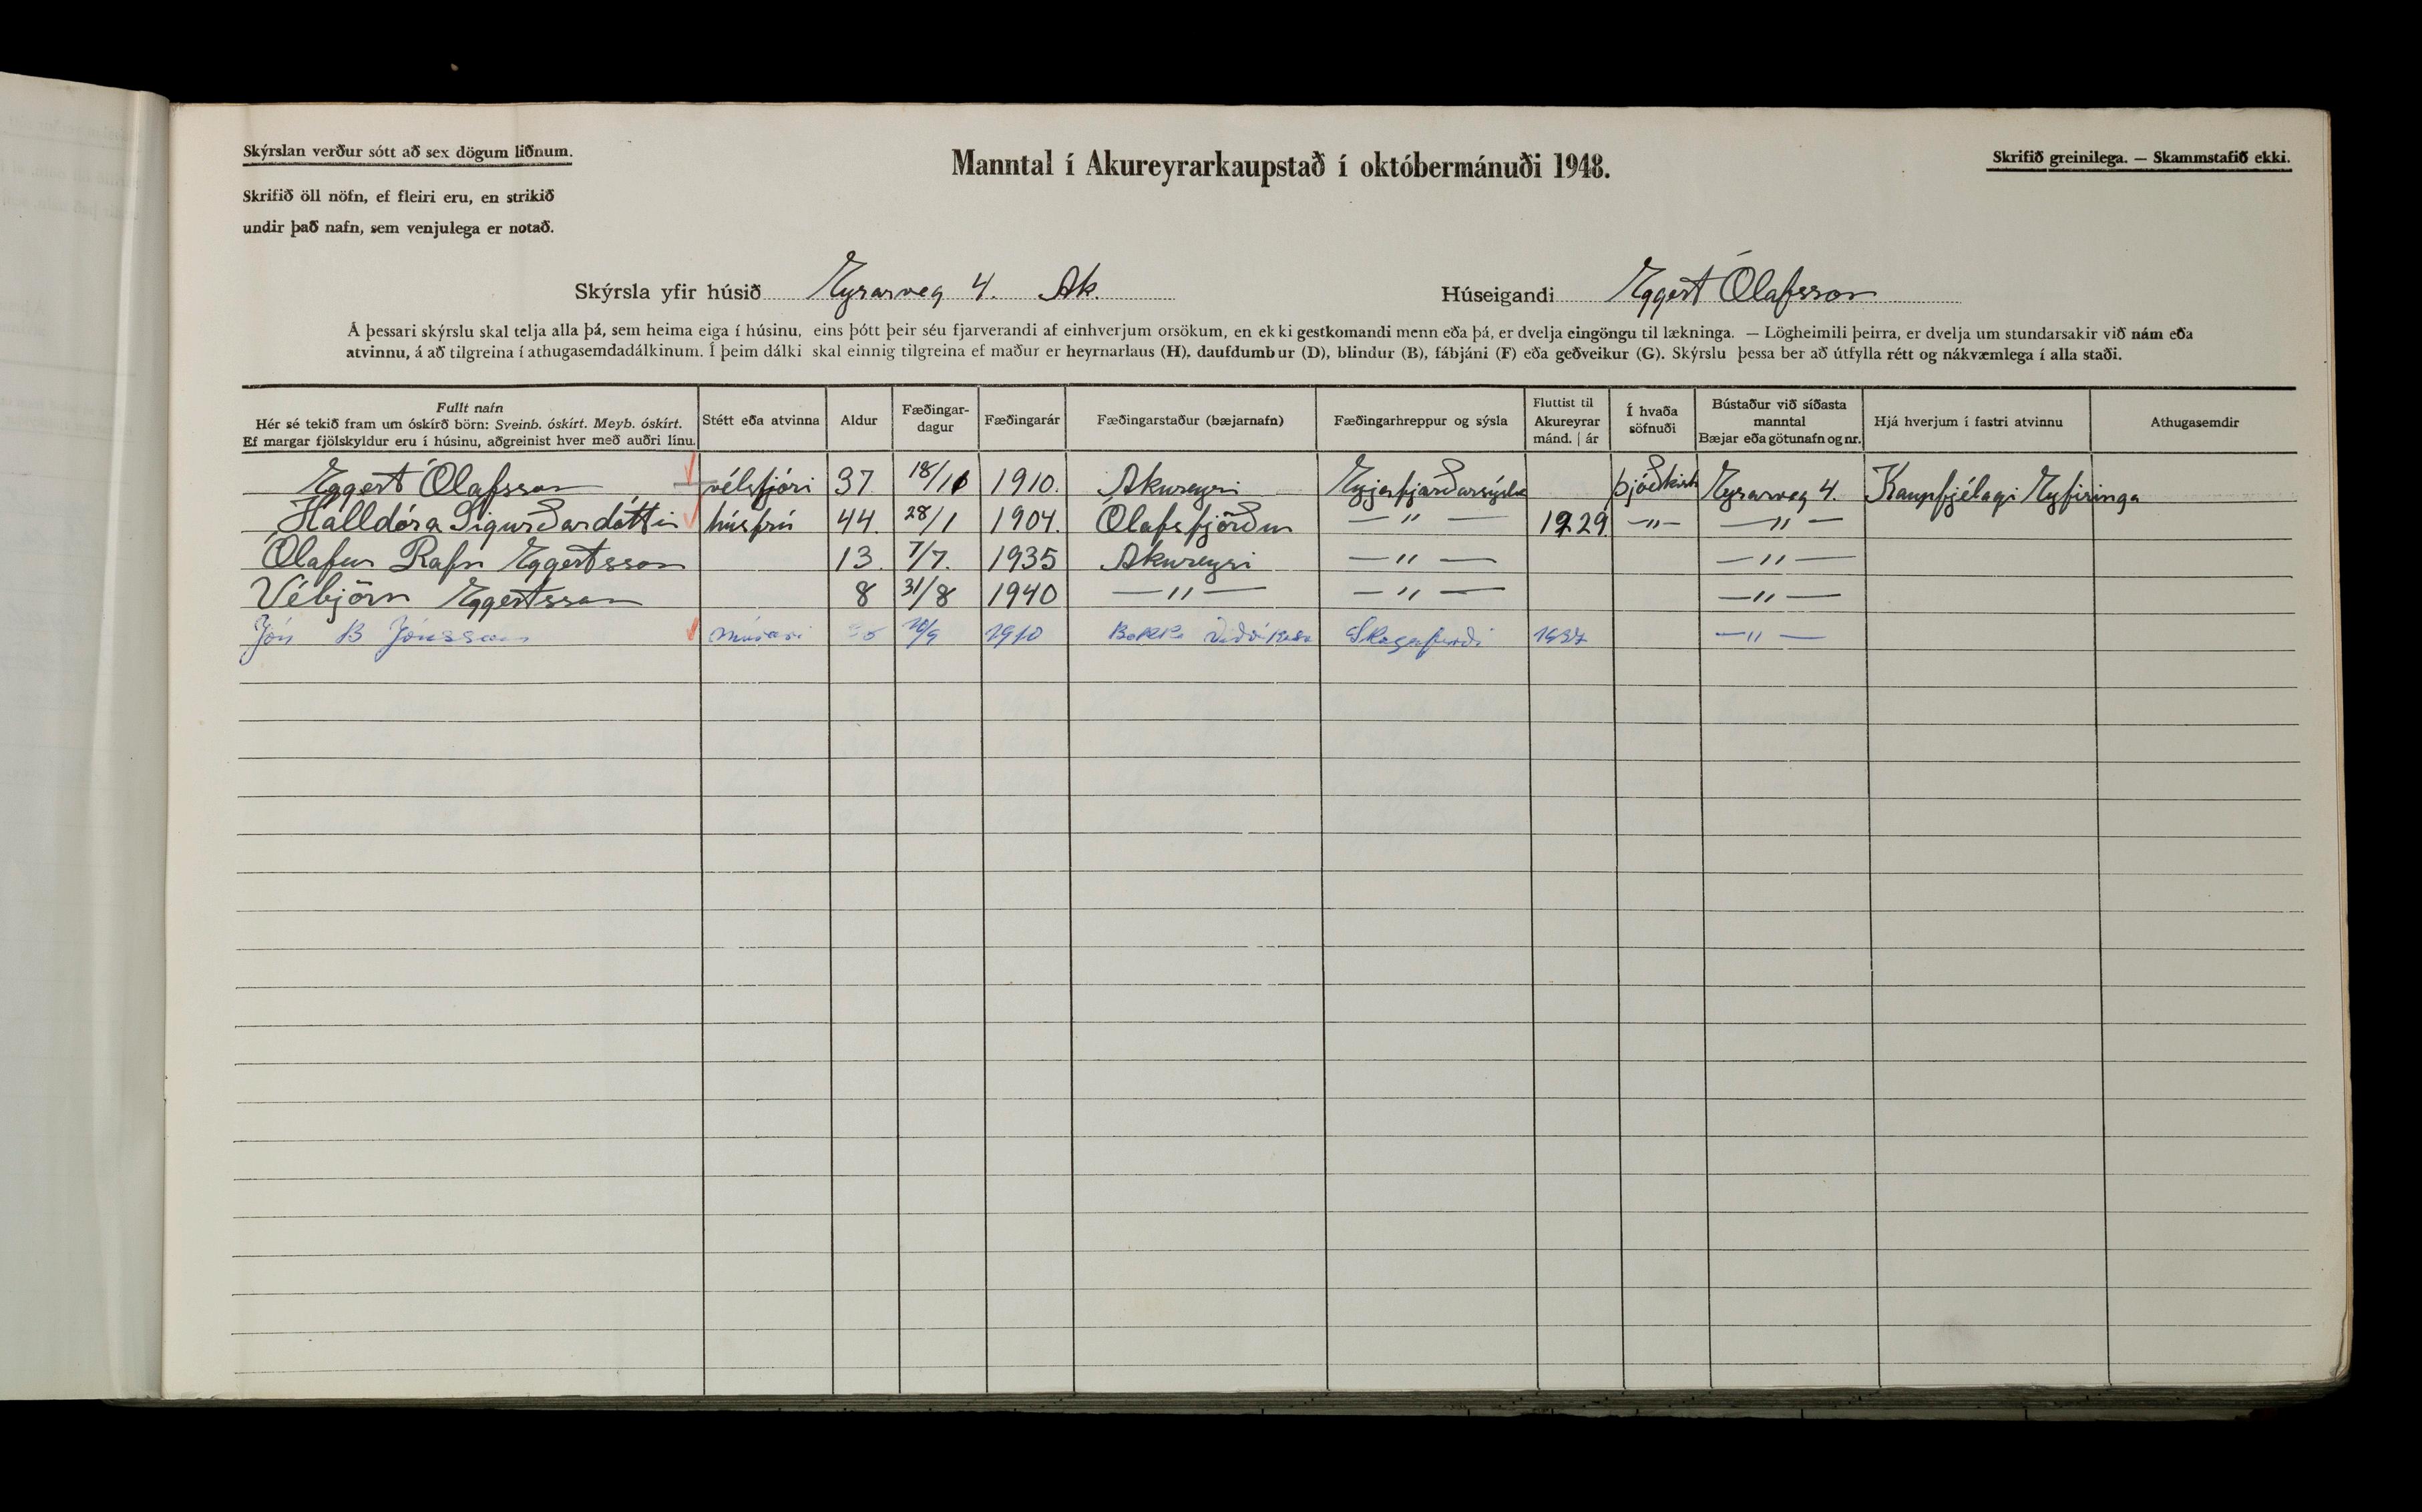 Skýrslan verður sótt að sex dögum liðnum.
Manntal í Akureyrarkaupstað í októbermánuði 1948.
Skrifið greinilega. — Skammstafið ekki.
Skrifið öll nöfn, ef fleiri eru, en strikið
undir það nafn, sem venjulega er notað.
Skýrsla yfir húsið Eyrarveg 4. Ak. Húseigandi Eggert Ólafsson
Á þessari skýrslu skal telja alla þá, sem heima eiga í húsinu, eins þótt þeir séu fjarverandi af einhverjum orsökum, en ekki gestkomandi menn eða þá, er dvelja eingöngu til lækninga. — Lögheimili þeirra, er dvelja um stundarsakir við nám eða
atvinnu, á að tilgreina í athugasemdadálkinum. Í þeim dálki skal einnig tilgreina ef maður er heyrnarlaus (H), daufdumbur (D), blindur (B), fábjáni (F) eða geðveikur (G). Skýrslu þessa ber að útfylla rétt og nákvæmlega í alla staði.
Fullt nafn
Hér sé tekið fram um óskírð börn: Sveinb. óskírt. Meyb. óskírt.
Ef margar fjölskyldur eru í húsinu, aðgreinist hver með auðri línu.
Stétt eða atvinna
Aldur
Fæðingar-
dagur
Fæðingarár
Fæðingarstaður (bæjarnafn)
Fæðingarhreppur og sýsla
Fluttist til
Akureyrar
mánd. | ár
Í hvaða
söfnuði
Bústaður við síðasta
manntal
Bæjar eða götunafn og nr.
Hjá hverjum í fastri atvinnu
Athugasemdir
Eggert Ólafsson vélstjóri 37. 18/10 1910. Akureyri Eyjafjarðarsýsla þjóðkirk Eyrarveg 4. Kaupfjélagi Eyfiringa
Halldóra Sigurðardóttir húsfrú 44. 28/1 1904. Ólafsfjörður — " — 1929. — " — — " —
Ólafur Rafn Eggertsson 13. 7/7. 1935 Akureyri — " — — " —
Vébjörn Eggertsson 8 31/8 1940 — " — — " — — " —
Jón B Jónsson múrari 1910 Bakka Skagafirði — " —